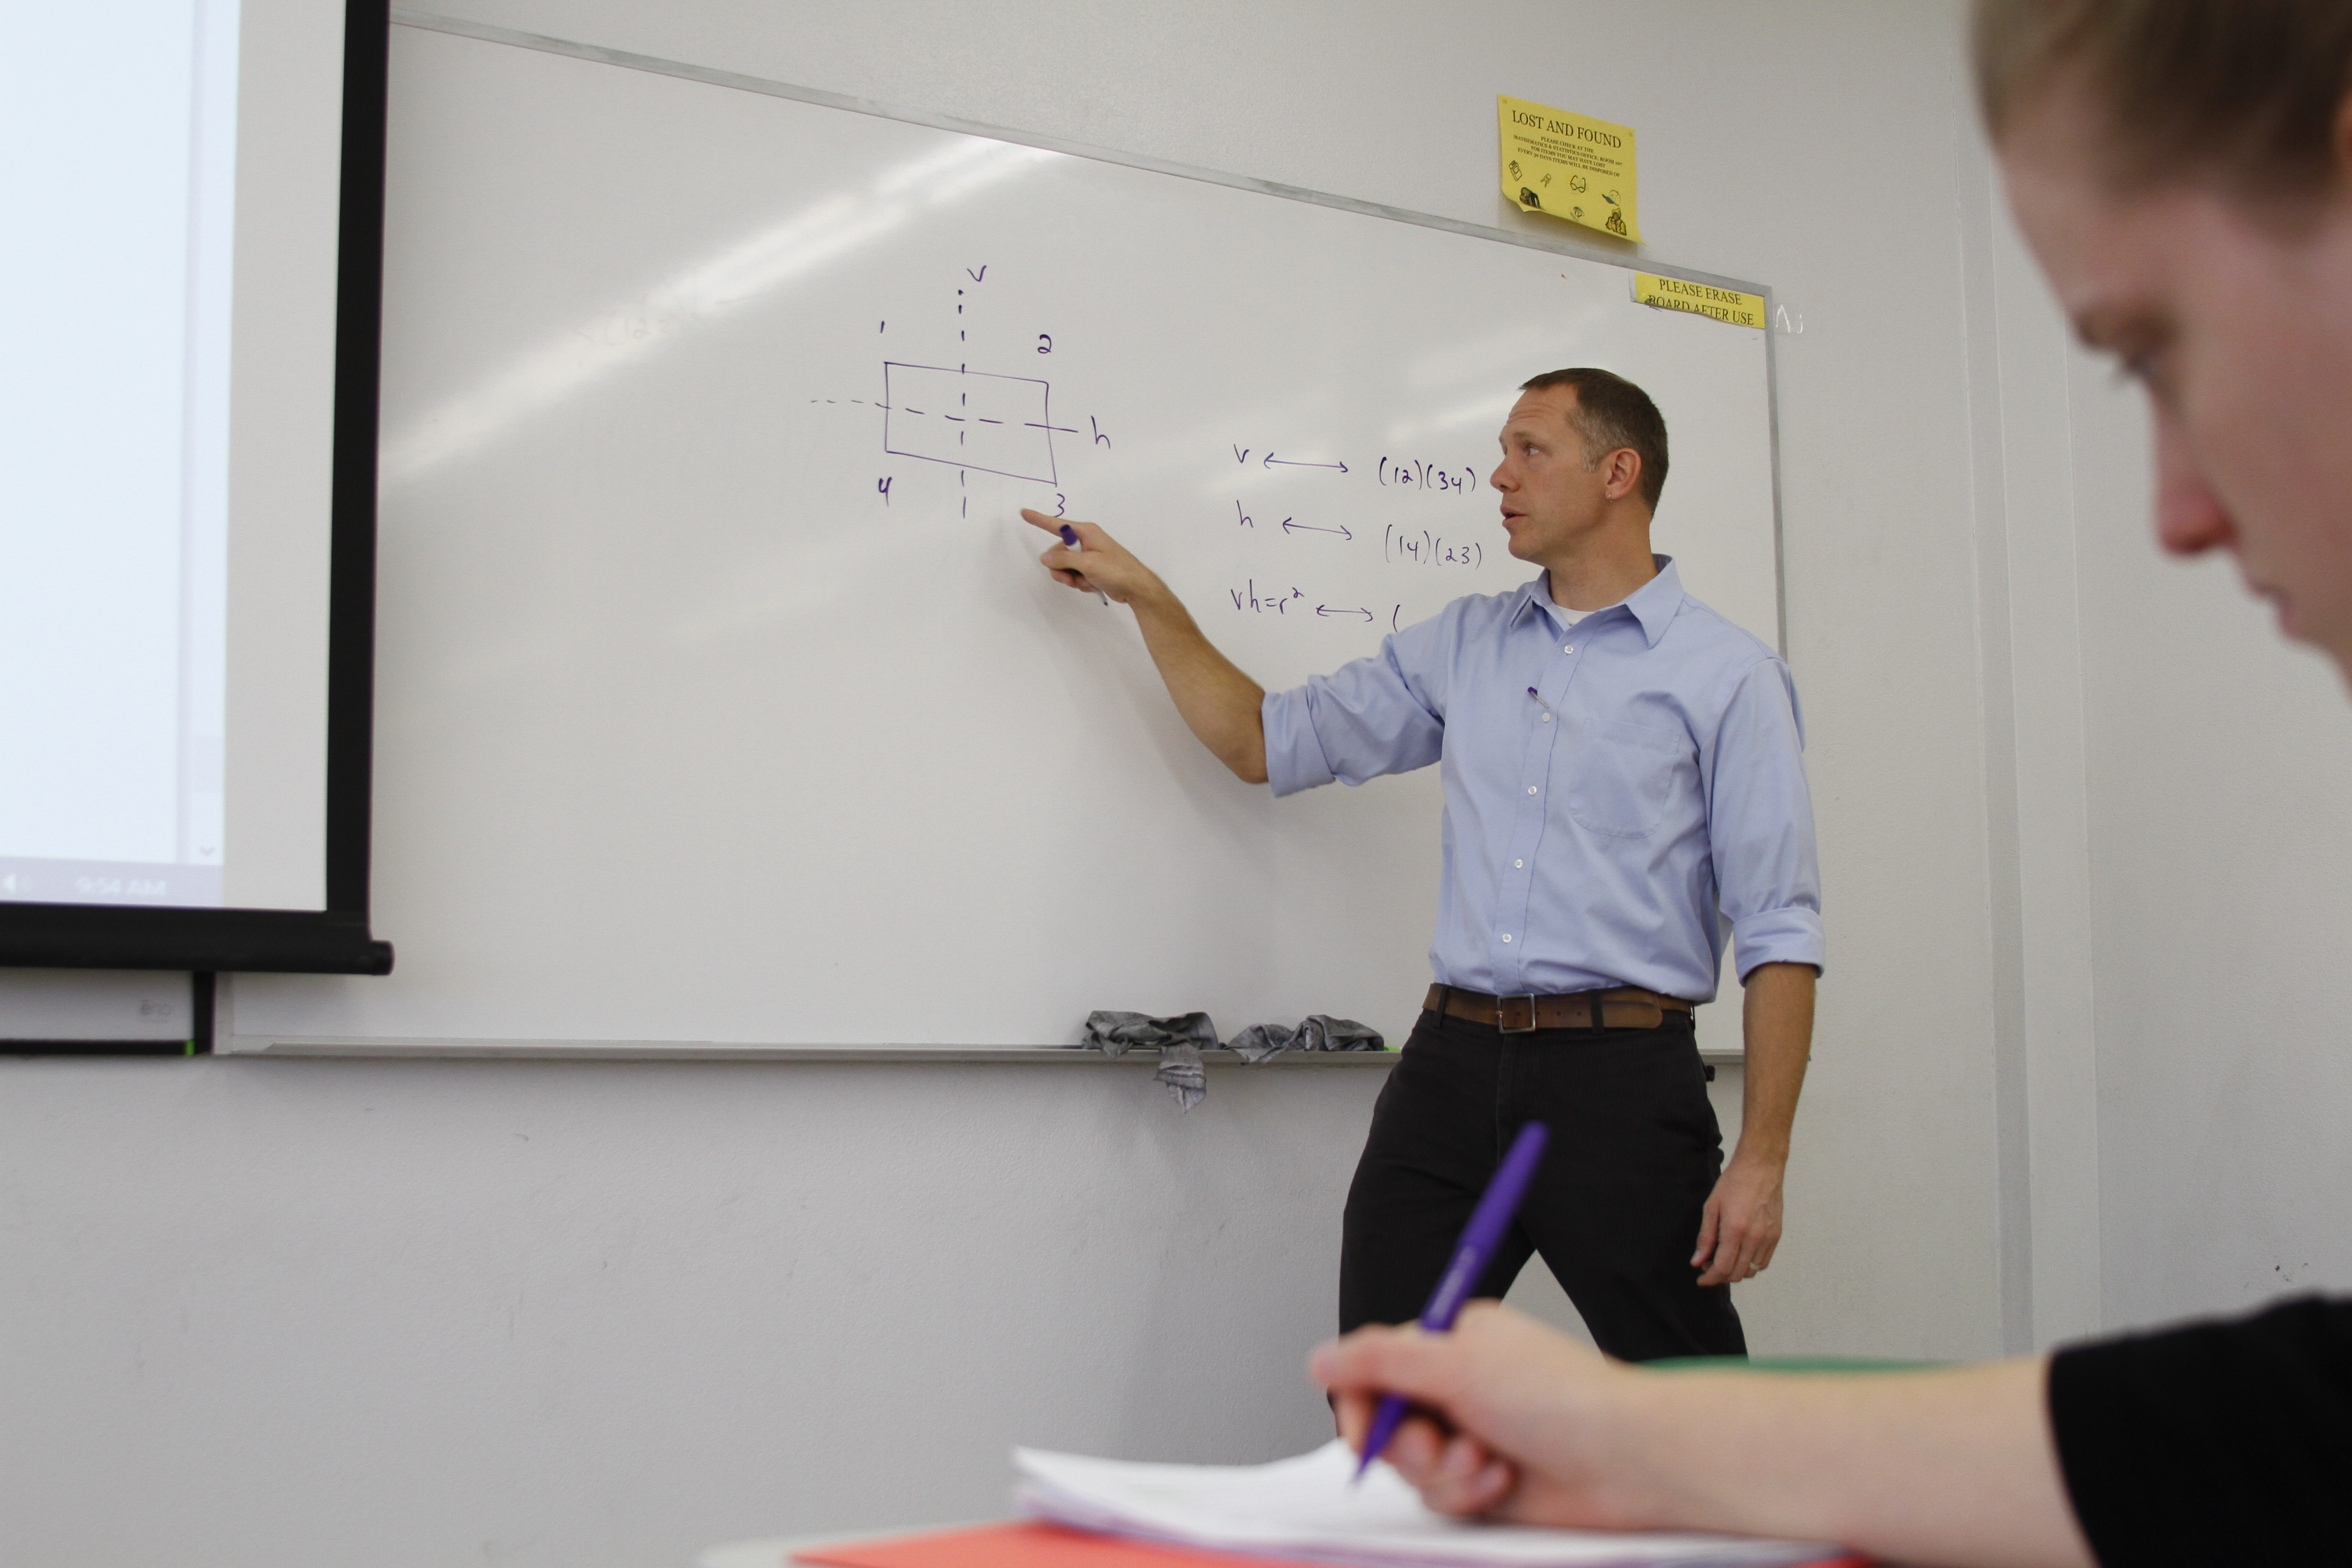 LOST AND FOUND
PLEASE CHECK AT THE
MATHEMATICS & STATISTICS OFFICE, ROOM
FOR ITEMS YOU MAY HAVE LOST
EVERY 30 DAYS ITEMS WILL BE DISPOSED OF
PLEASE ERASE
BOARD AFTER USE
v
1
2
h
4
3
v ↔ (12)(34)
h ↔ (14)(23)
vh=r² ↔ (
(123)
9:54 AM